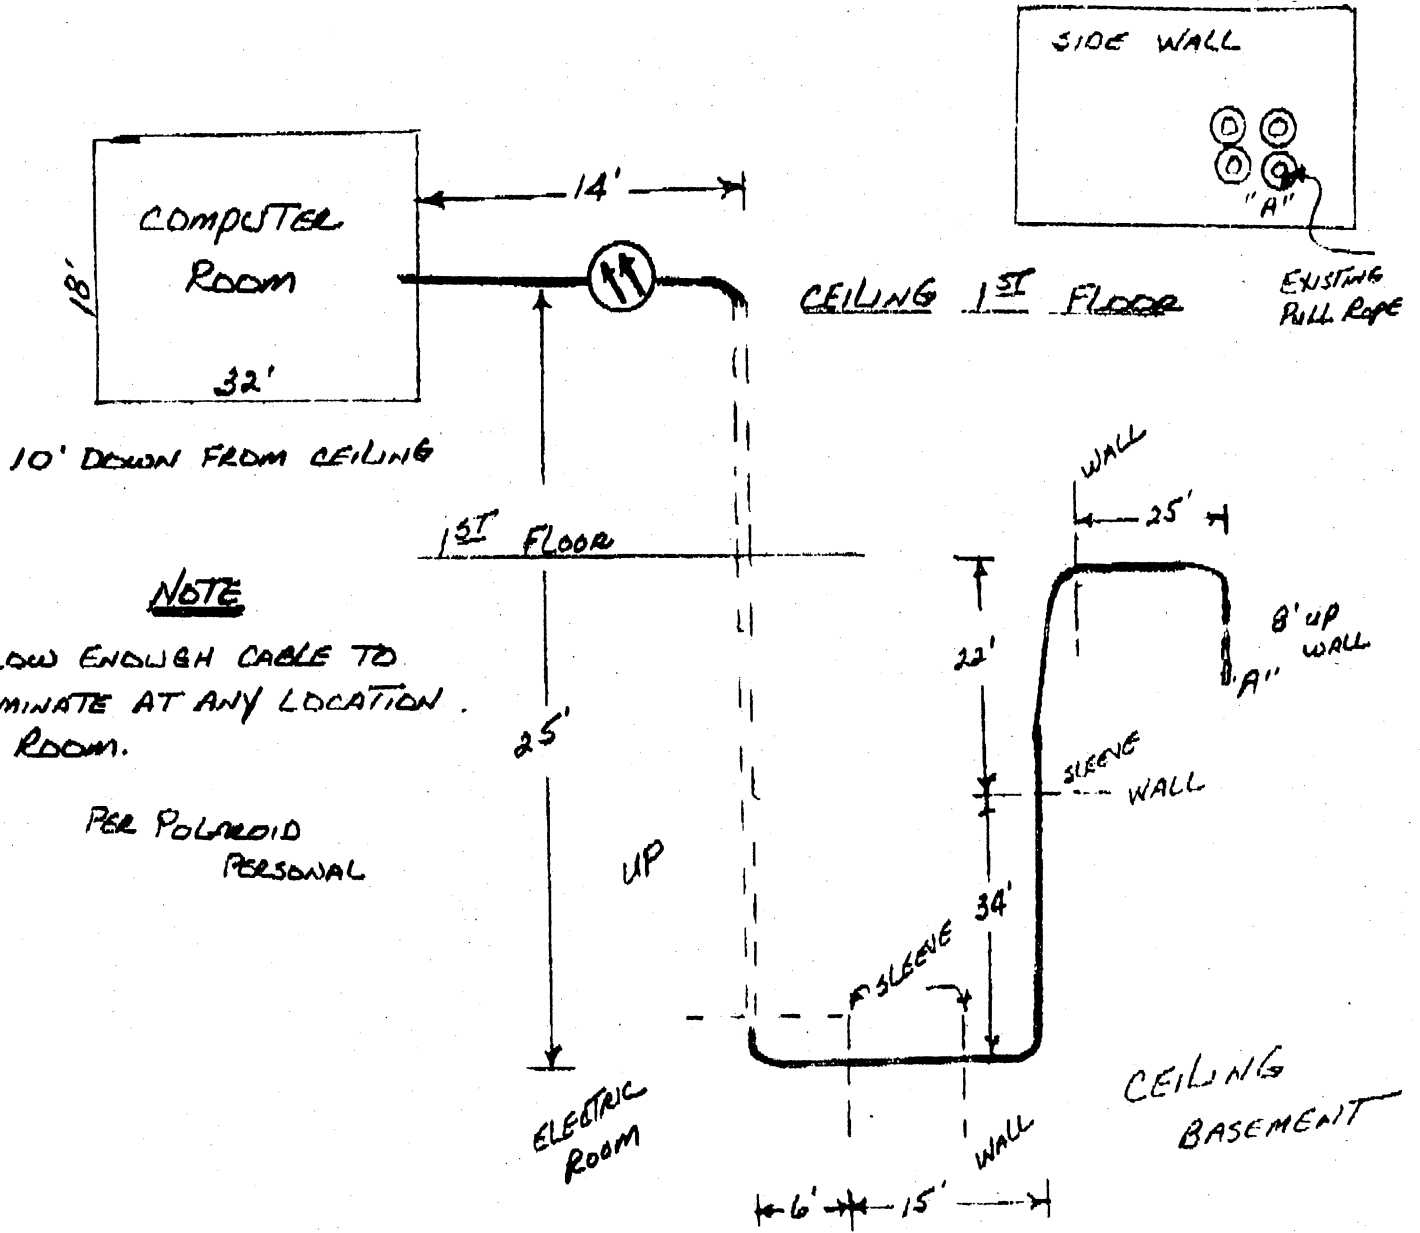 SIDE WALL
"A"
EXISTING
PULL ROPE
14'
COMPUTER
ROOM
18'
32'
CEILING 1ST FLOOR
10' DOWN FROM CEILING
1ST FLOOR
NOTE
LOW ENOUGH CABLE TO
MINATE AT ANY LOCATION.
ROOM.
PER POLAROID
PERSONAL
25'
UP
WALL
25'
22'
8' UP
WALL
"A"
SLEEVE
WALL
34'
SLEEVE
ELECTRIC
ROOM
WALL
6'
15'
CEILING
BASEMENT